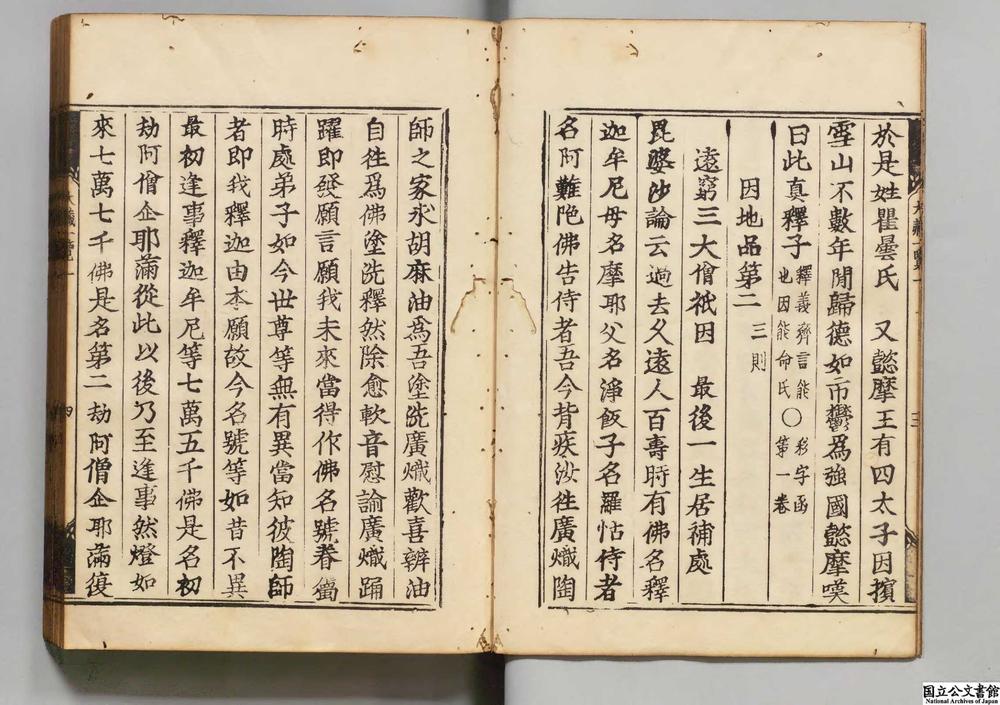 於是姓瞿曇氏　又懿摩王有四太子因擯
雪山不數年閒歸德如市鬱爲強國懿摩嘆
曰此真釋子 釋義齊言能 〇 彩字函
也因能命氏 第一卷
因地品第二　三則
遠窮三大僧祇因　最後一生居補處
毘婆沙論云過去久遠人百壽時有佛名釋
迦牟尼母名摩耶父名淨飯子名羅怙侍者
名阿難陁佛告侍者吾今背疾汝徃廣熾陶
師之家求胡麻油爲吾塗洗廣熾歡喜辦油
自徃爲佛塗洗釋然除愈軟音慰諭廣熾踊
躍即發願言願我未來當得作佛名號眷屬
時處弟子如今世尊等無有異當知彼陶師
者即我釋迦由本願故今名號等如昔不異
最初逢事釋迦牟尼等七萬五千佛是名初
劫阿僧企耶滿從此以後乃至逢事然燈如
來七萬七千佛是名第二劫阿僧企耶滿復
大藏一覽一
三
四
国立公文書館
National Archives of Japan